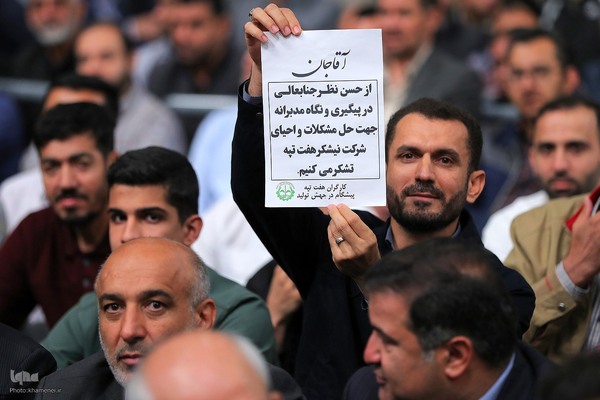 آقاجان
از حسن نظر جنابعالی
در پیگیری و نگاه مدبرانه
جهت حل مشکلات و احیای
شرکت نیشکر هفت تپه
تشکر می کنیم.
کارگران هفت تپه
پیشگام در جهش تولید
ایکنا
Photo:khamenei.ir